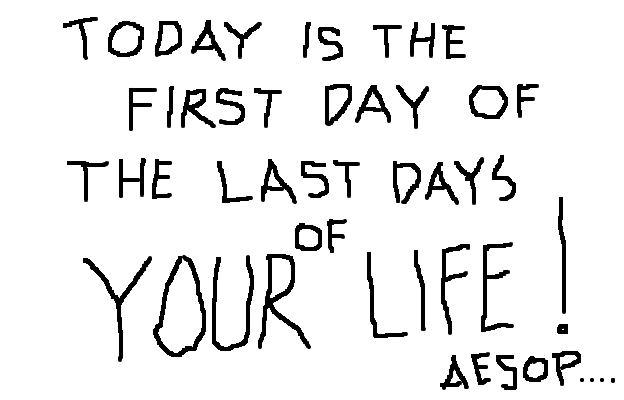 TODAY IS THE
FIRST DAY OF
THE LAST DAYS
OF
YOUR LIFE!
AESOP....